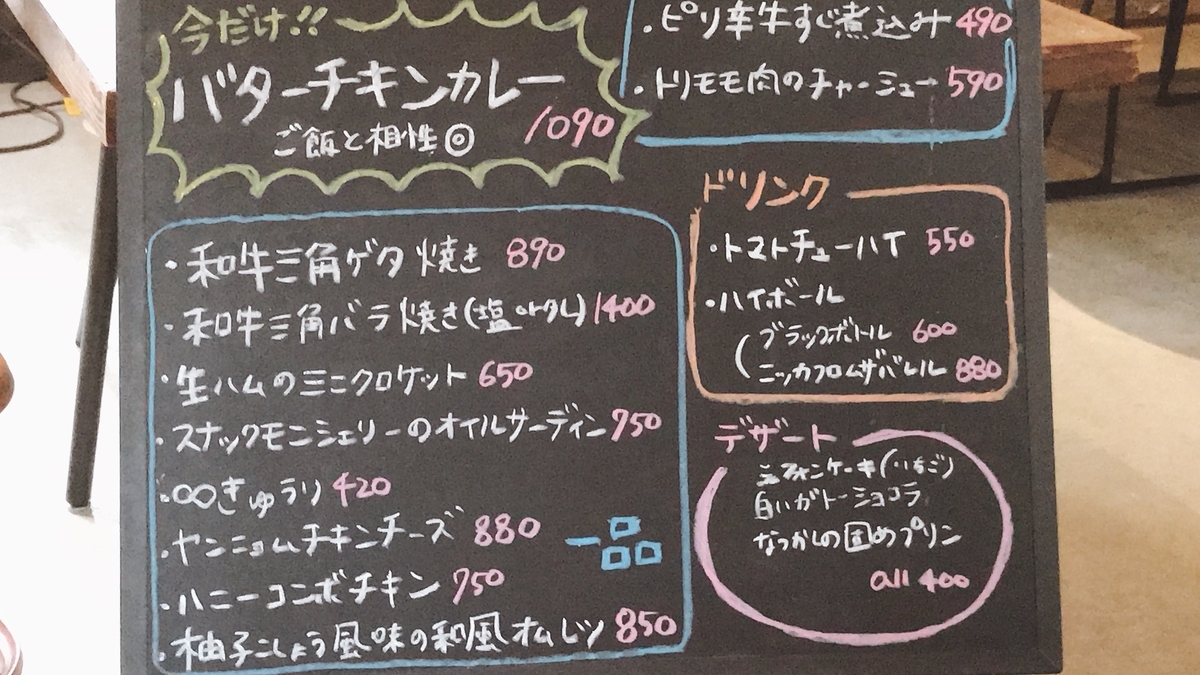 今だけ!!
バターチキンカレー
ご飯と相性◎ 1090
・ピリ辛牛すじ煮込み 490
・トリモモ肉のチャーシュー 590
・和牛三角ゲタ焼き 890
・和牛三角バラ焼き(塩orタレ) 1400
・生ハムのミニクロケット 650
・スナックモンシェリーのオイルサーディン 750
・∞きゅうり 420
・ヤンニョムチキンチーズ 880
・ハニーコンボチキン 750
・柚子こしょう風味の和風オムレツ 850
一品
ドリンク
・トマトチューハイ 550
・ハイボール
(ブラックボトル 600
ニッカフロムザバレル 880
デザート
シフォンケーキ(いちご)
白いガトーショコラ
なつかしの固めプリン
all 400